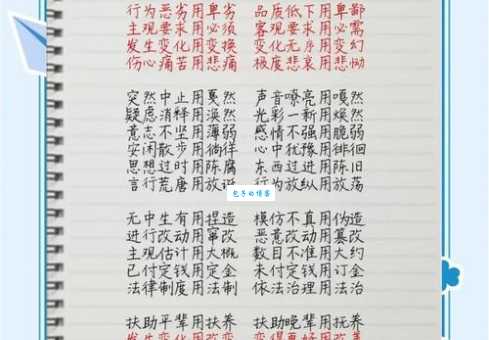 行为恶劣用卑劣 品质低下用卑鄙
主观要求用必须 客观要求用必需
发生变化用变换 变化无序用变幻
伤心痛苦用悲痛 极度悲哀用悲恸
突然中止用戛然 声音嘹亮用嘎然
疑虑消释用涣然 光彩一新用焕然
意志不坚用薄弱 感情不强用脆弱
安闲散步用徜徉 心中犹豫用徘徊
思想过时用陈腐 东西过进用陈旧
言行荒唐用放诞 行为放纵用放荡
包子的博客
无中生有用捏造 模仿不真用伪造
进行改动用窜改 恶意改动用篡改
主观估计用大概 数目不准用大约
已付定钱用定金 未付定钱用订金
法律制度用法制 依法治理用法治
扶助平辈用扶养 扶助晚辈用抚养
发生变化用改变 变得更好用改善